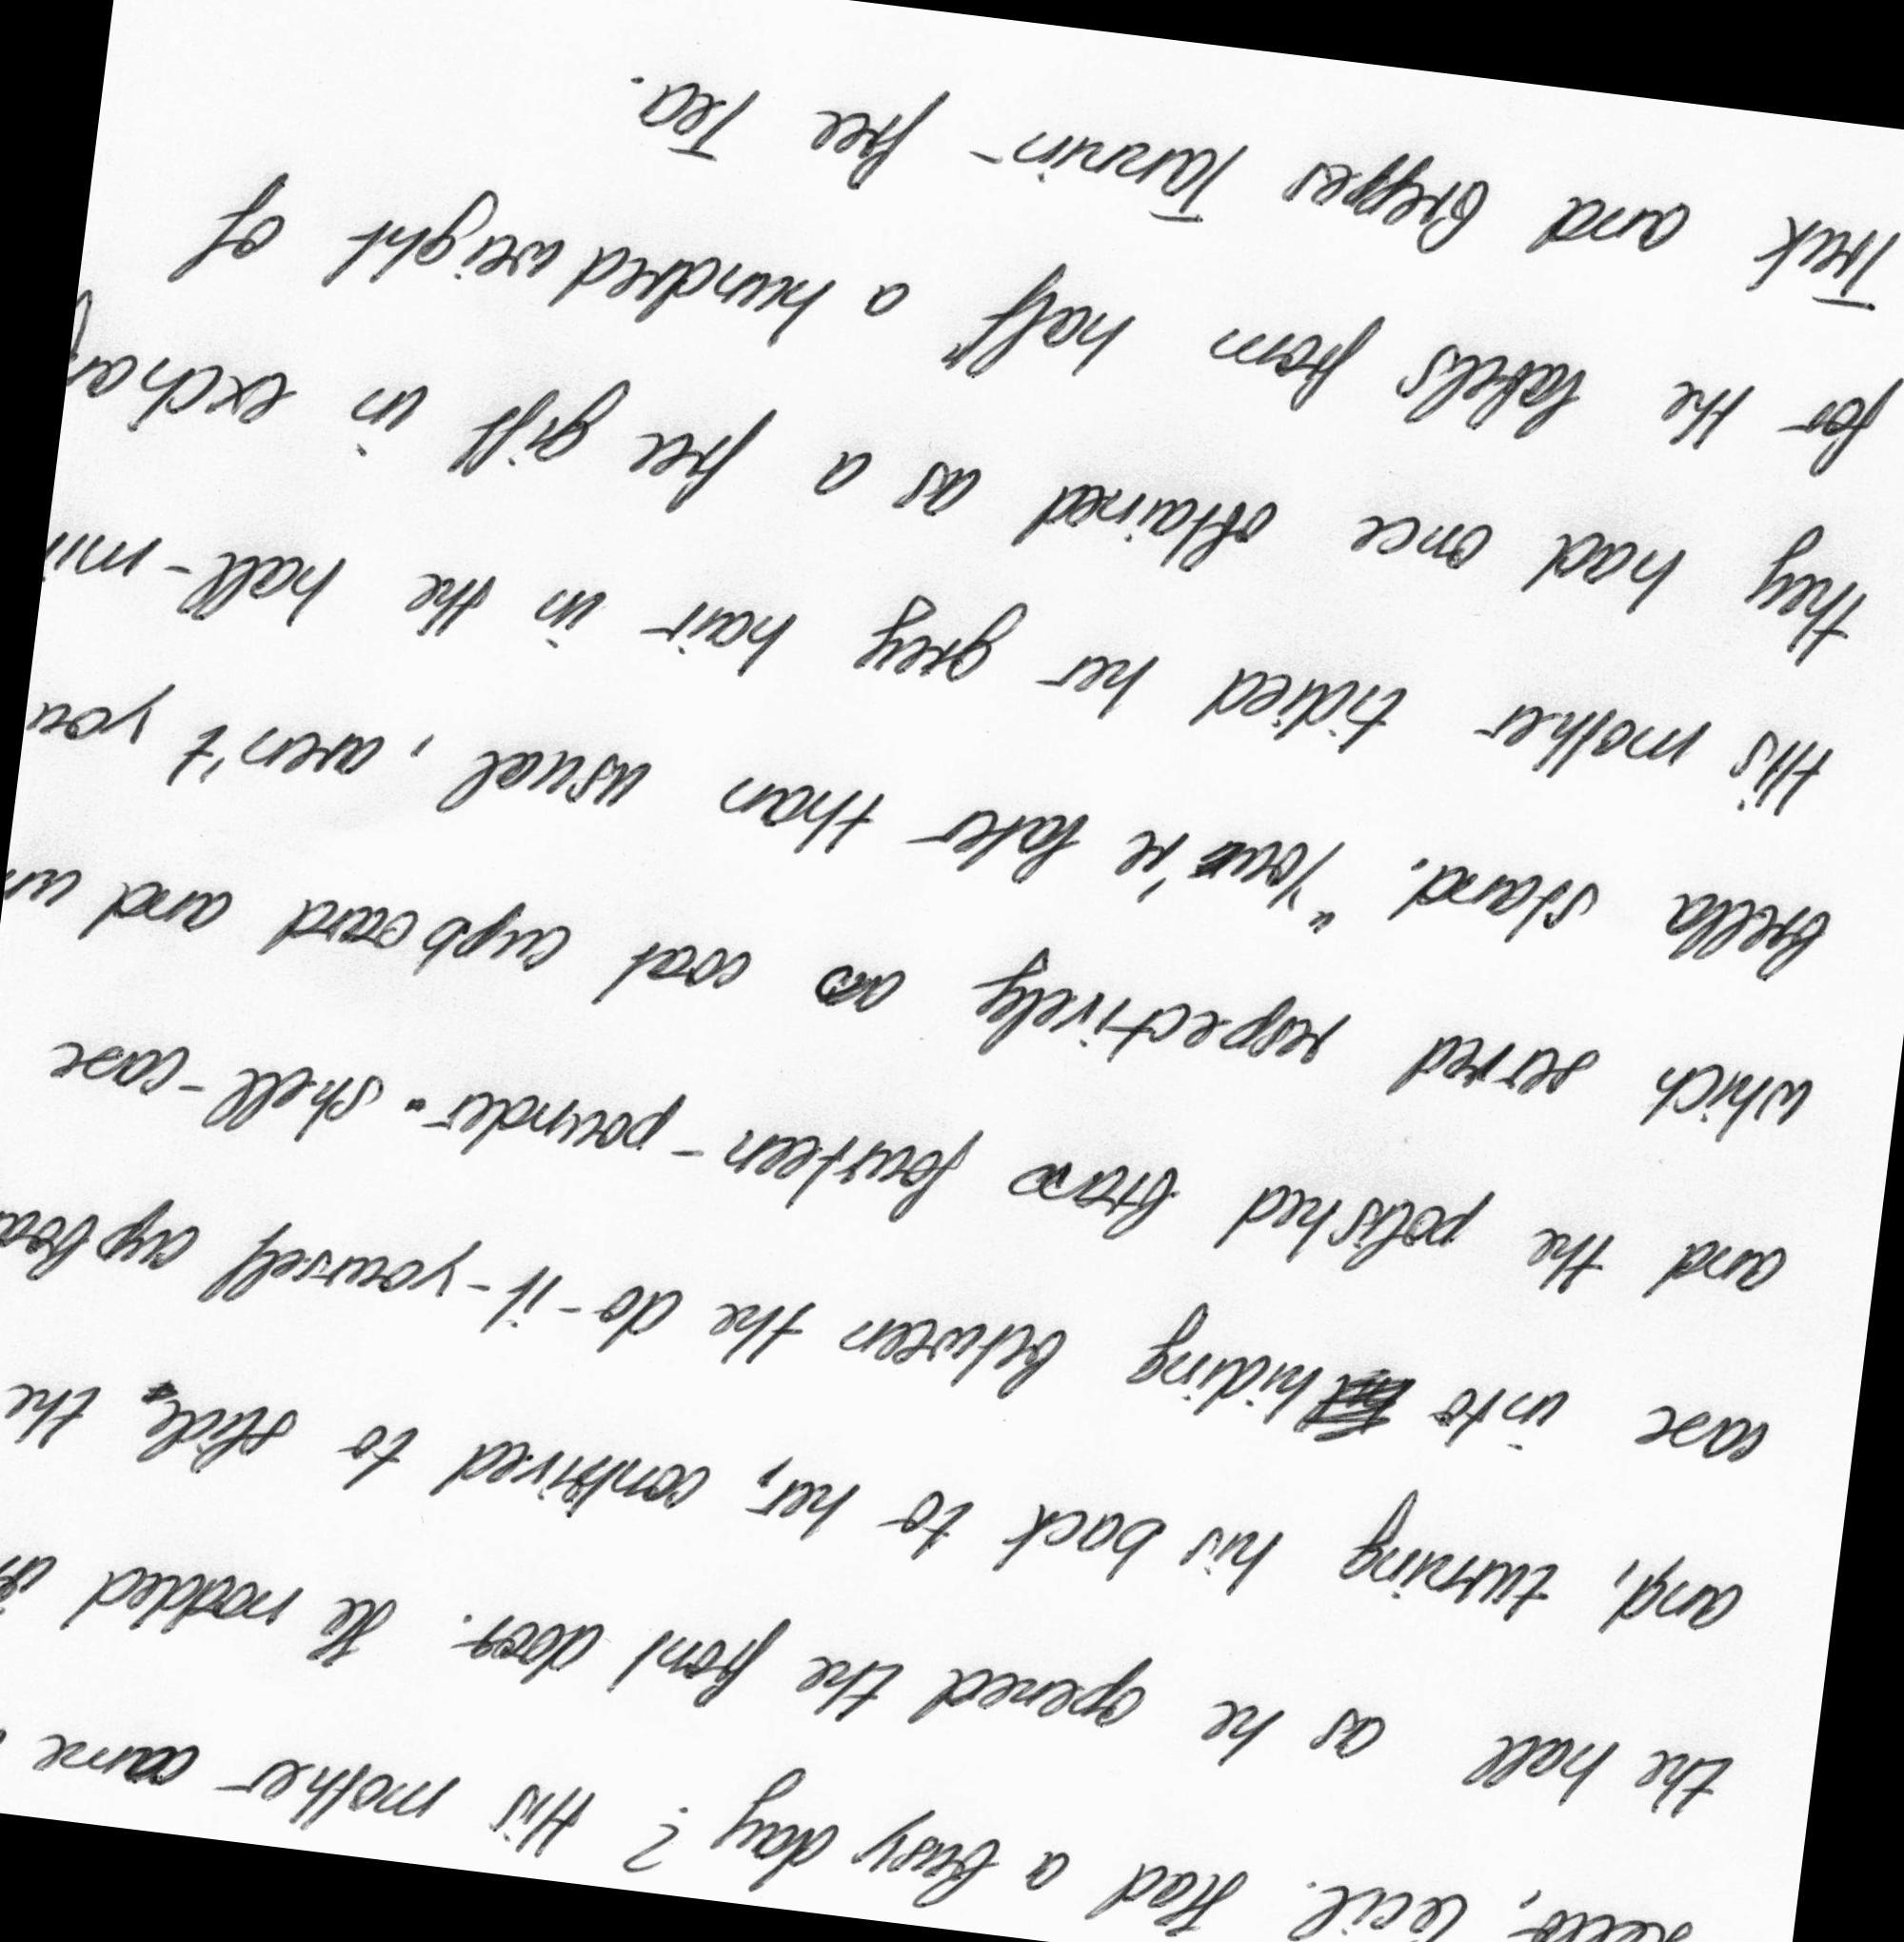 Hello, Cecil. Had a busy day? His mother came
the hall as he opened the front door. He nodded
and, turning his back to her, contrived to slide, the
case into hiding between the do-it-yourself
and the polished brass fourteen-pounder" shell-case
which served respectively as coat cupboard and
brella stand. "You're later than usual, aren't you
His mother tidied her grey hair in the hall-
they had once obtained as a free gift in
for the labels from half a hundredweight of
Trek and Breppes Tannin-free Tea.